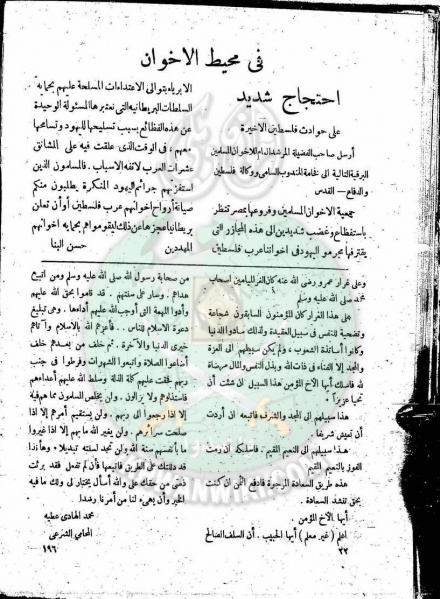 في محيط الاخوان
احتجاج شديد
على حوادث فلسطين الاخيرة
أرسل صاحب الفضيلة المرشد العام للاخوان المسلمين
البرقية التالية الى فخامة المندوب السامى ووكالة فلسطين
والدفاع — القدس
جمعية الاخوان المسلمين وفروعها بمصر تنظر
باستفظاع وغضب شديدين الى هذه المجازر التى
يقترفها مجرمو اليهود فى اخواننا عرب فلسطين
الابرياء بتوالى الاعتداءات المسلحة عليهم بحماية
السلطات البريطانية التى نعتبرها المسئولة الوحيدة
عن هذه الفظائع بسبب تسليحها لليهود وتسامحها
معهم، فى الوقت الذى علقت فيه على المشانق
عشرات العرب لاتفه الاسباب. فالمسلمون الذين
استفزتهم جرائم اليهود المتكررة يطلبون منكم
صيانة أرواح اخوانهم عرب فلسطين أو أن تعلن
بريطانيا عجزها عن ذلك ليقوموا هم بحماية اخوانهم
المهددين حسن البنا
وعلى غرار عمرو رضى الله عنه كان الغر الميامين أصحاب
محمد صلى الله عليه وسلم
على هذا الغرار كان المؤمنون السابقون شجاعة
وتضحية للنفس فى سبيل العقيدة ولذلك سادوا الدنيا
وكانوا أساتذة الشعوب، ولم يكن سبيلهم الى العزة
والمجد إلا الفناء فى ذات الله وبذل النفس والمال مهرضاة
لله فاسلك أيها الأخ المؤمن هذا السبيل ان شئت أن
تحيا عزيزاً
هذا سبيلهم الى المجد والشرف فاتبعه ان أردت
أن تعيش شريفا.
هذا سبيلهم الى النعيم المقيم. فاسلكه ان رمت
الفوز بالنعيم المقيم
هذه طريق السعادة المرجوة فادفع الثمن ان كنت
بحق تنشد السعادة.
أيها الأخ المؤمن.
اعلم (غير معلم) أيها الحبيب. أن السلف الصالح
٢٢
من صحابة رسول الله صلى الله عليه وسلم ومن اتبع
هداهم. وسار على سنتهم. قد قاموا بحق الله عليهم
وأدوا المهمة التى أوجب الله عليهم أداءها. وهى تبليغ
دعوة الاسلام للناس. فأعزهم الله بالاسلام وآتاهم
خيرى الدنيا والآخرة. ثم خلف من بعدهم خلف
أضاعوا الصلاة واتبعوا الشهوات وفرطوا فى جنب
ربهم فحقت عليهم كلمة الذلة وسلط الله عليهم أعداءهم
فاستذلوهم ولا يزالون. ولن يخلص المسلمون مما هم فيه
إلا اذا رجعوا الى ربهم. ولن يستقيم أمرهم إلا اذا
صلحت سرائرهم. ولن يغير الله ما بهم إلا اذا غيروا
ما بأنفسهم سنة الله ولن تجد لسنته تبديلا. وهاأنذا
قد دللتك على الطريق فاتبعها فأن لم تفعل فقد برئت
ذمتى من حقك على والله أسأل أن يختار لى ولك ما فيه
الخير وأن يهيىء لنا من أمرنا رشدا.
محمد الهادى عطيه
المحامى الشرعى
١٩٦